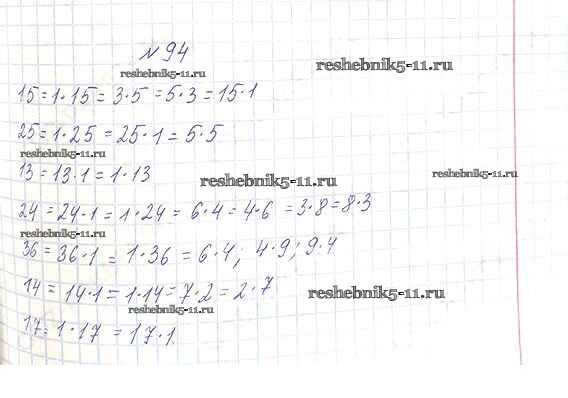 № 94
reshebnik5-11.ru
reshebnik5-11.ru
15 = 1 · 15 = 3 · 5 = 5 · 3 = 15 · 1
25 = 1 · 25 = 25 · 1 = 5 · 5
reshebnik5-11.ru
13 = 13 · 1 = 1 · 13
reshebnik5-11.ru
reshebnik5-11.ru
24 = 24 · 1 = 1 · 24 = 6 · 4 = 4 · 6 = 3 · 8 = 8 · 3
reshebnik5-11.ru
36 = 36 · 1 = 1 · 36 = 6 · 4; 4 · 9; 9 · 4
14 = 14 · 1 = 1 · 14 = 7 · 2 = 2 · 7
reshebnik5-11.ru
reshebnik5-11.ru
17 = 1 · 17 = 17 · 1